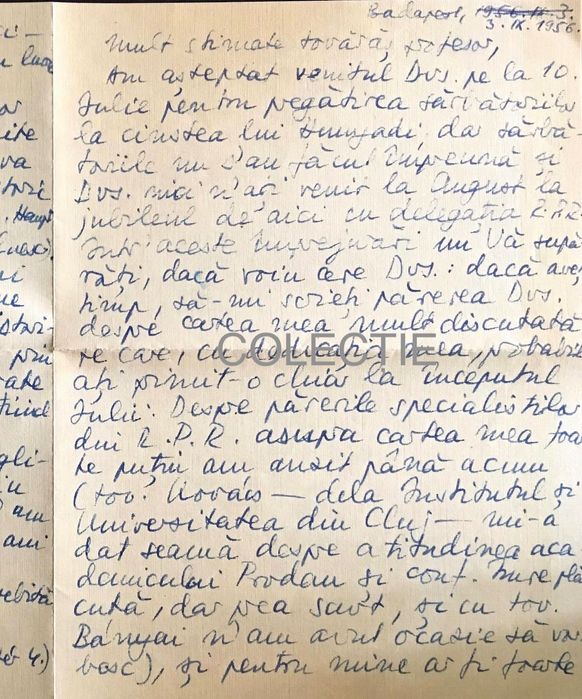 Badapest, 1956. IX. 3.
3. IX. 1956.
Mult stimate tovărăş profesor,
Am aşteptat venitul Dvs. pe la 10.
Iulie pentru pregătirea sărbătoriilor
la cinstea lui Hunyadi, dar sărbă-
torile nu s'au făcut împreună şi
Dvs. nici n'aţi venit la August la
jubileul de aici cu delegaţia R.P.R.
Într'aceste împrejurări nu Vă supă
răţi, dacă voiu cere Dvs.: dacă aveţi
timp, să-mi scrieţi părerea Dvs.
despre cartea mea mult discutată
pe care, cu dedicaţia mea, probabil
aţi primit-o chiar la începutul
Iulii. Despre părerile specialiştilor
din R.P.R. asupra cartea mea foar
te puţin am auzit până acum
(tov. Kovács — dela Institutul şi
Universitatea din Cluj — mi-a
dat seamă despre atitudinea aca
demicului Prodan şi conf. Imre plă
cută, dar prea scurt, şi cu tov.
Bányai n'am avut ocasie să vor
besc), şi pentru mine ar fi foarte
COLECTIE